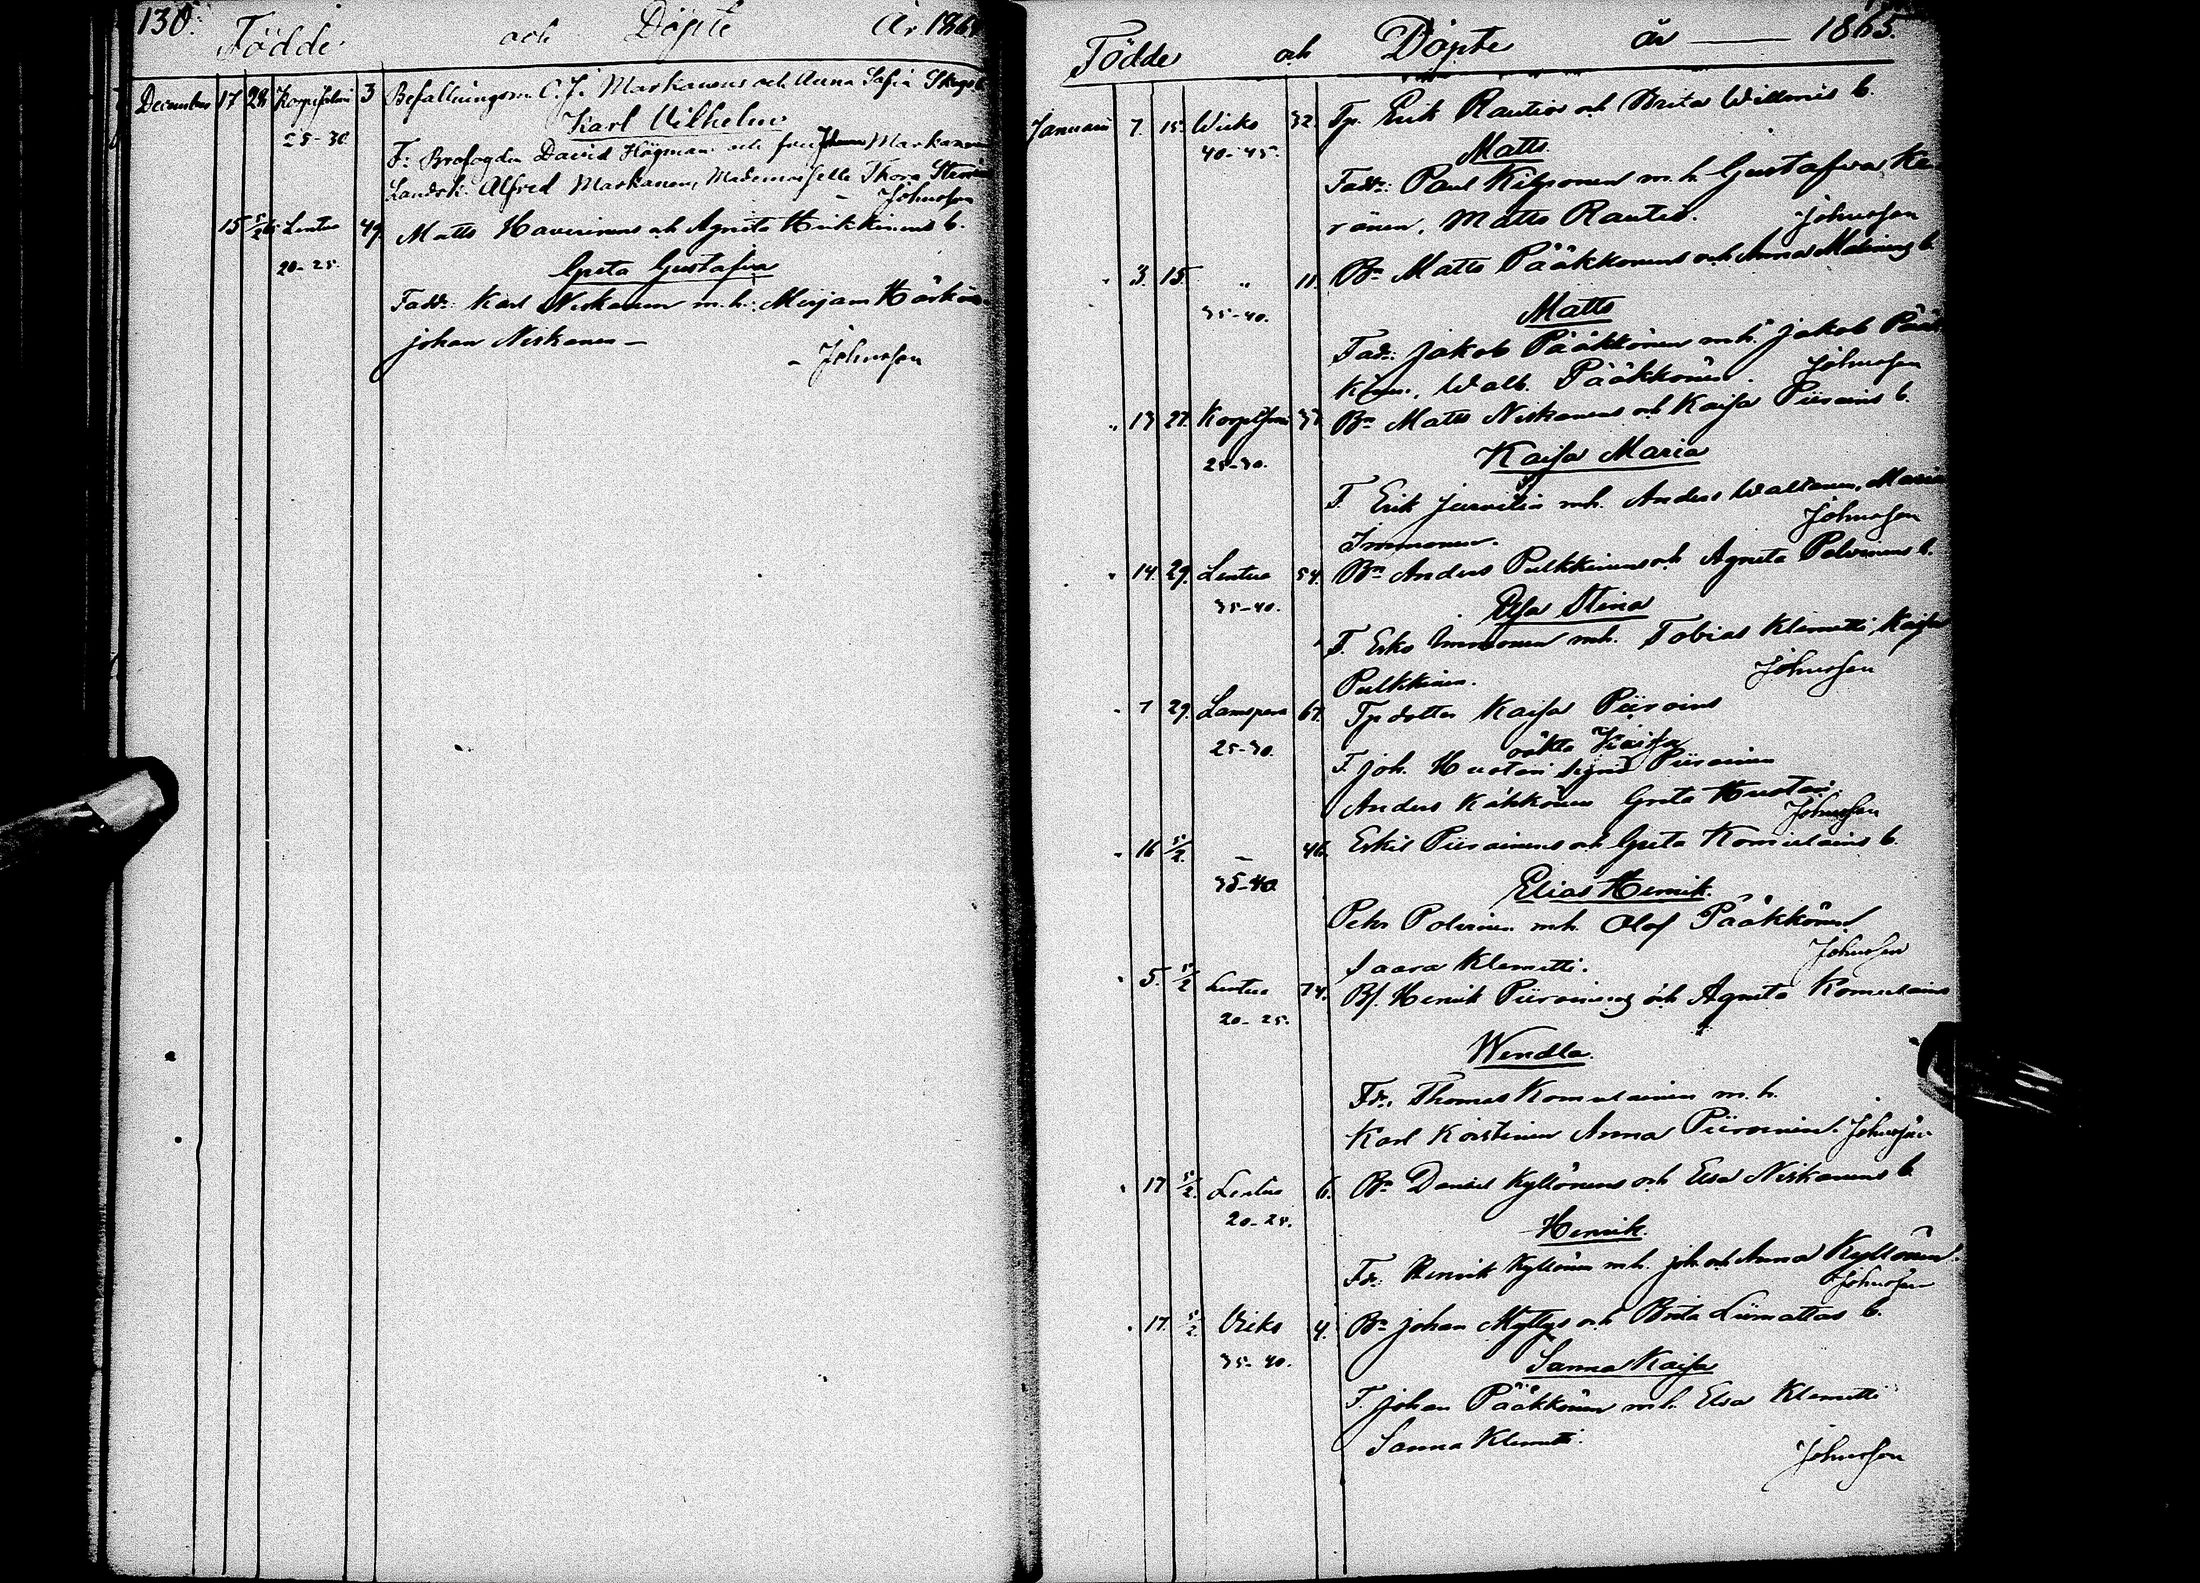 130.
Födde och Döpte År 1864
December 17 28 Korpisalmi 3 Befallningsm. C. J. Markanens och Anna Sofia
25-30 Karl Vilhelm
F: Brofogden David Högman och fru Markanen
Landsk. Alfred Markanen, Mademoiselle Thora
Johnsson
15 5/2 65 Lentua 49. Matts Haverinens och Agneta Heikkinens b.
20-25. Greta Gustafva
Fadd: Karl Niskanen m. h. Mirjam Härkön
Johan Niskanen —
– Johnsson
Födde och Döpte år — 1865.
Januari 7. 15. Wieks 32. Tp. Erik Rautios och Brita Willmis b.
40-45. Matts
Fadd: Paul Kilponen m. h. Gustafva Ke
ränen, Matts Rautio. Johnsson
" 3. 15. " 11. Bn Matts Pääkkönens och Anna b.
35-40. Matts
Fad: Jakob Pääkkönen mh. Jakob Pääk
könen, Walb. Pääkkönen. Johnsson
" 13 27. Korpisalmi 37. Bn Matts Niskanens och Kaisa Piirainis b.
25-30. Kaisa Maria
F. Erik mh. Anders Waltanen, Maria
Immonen. Johnsson
" 14. 29. Lentua 54. Bn Anders Pulkkinens och Agneta Polvinens b.
35-40. Elsa Stina
F. Esko Immonen mh. Tobias Klemetti, Kaisa
Pulkkinen. Johnsson
" 7 29. Lamspera 67. Tpdotter Kaisa Piirainis
25-30. oäkta Kaisa
F. Joh. Huotari Signe Piirainen
Anders Kähkönen Greta Huotari
Johnsson
" 16 5/2. – 46. Eskil Piirainens och Greta Komulainis b.
35-40 Elias Henrik.
Peter Polvinen mh. Olof Pääkkönen
Saara Klemetti. Johnsson
" 5. 5/2 Lentua 74. Bf. Henrik Piirainens och Agneta Komulainis
20-25. Wendla.
Fd. Thomas Komulainen m. h.
Karl Koistinen Anna Piirainen. Johnsson
" 17 5/2. Lentua 6. Bn Daniel Kyllönens och Elsa Niskanens b
20-25. Henrik.
Fd: Henrik Kyllönen mh. Joh och Anna Kyllönen.
Johnsson
" 17. 5/2 Vieks 4. Bn Johan Myllys och Brita Liimattas b.
35-40. Sanna Kaisa
F. Johan Pääkkönen mh. Elsa Klemetti
Sanna Klemetti.
Johnsson